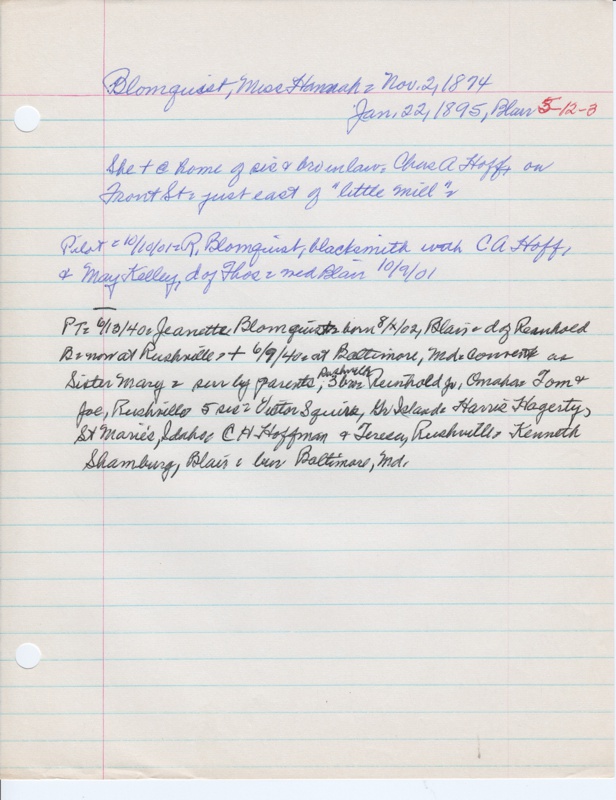 Blomquist, Miss Hannah = Nov. 2, 1874
Jan. 22, 1895, Blair 5-12-3
She + @ home of sis & bro inlaw = Chas A Hoff, on
Front St = just east of "little mill" =
Pilot = 10/10/01 = R. Blomquist, blacksmith with C A Hoff,
& May Kelley, d of Thos = med Blair 10/9/01
PT = 6/13/40 = Jeanette Blomquist = born 8/2/02, Blair = d of Reinhold
B = now at Rushville = + 6/9/40 = at Baltimore, Md = Convent as
Rushville
Sister Mary = sur by parents, 3 bro Reinhold Jr, Omaha = Tom &
Joe, Rushville 5 sis = Victor Squire, Gr Island = Harris Hagerty,
St Maries, Idaho = C H Hoffman & Teresa, Rushville = Kenneth
Shamburg, Blair = bur Baltimore, Md.